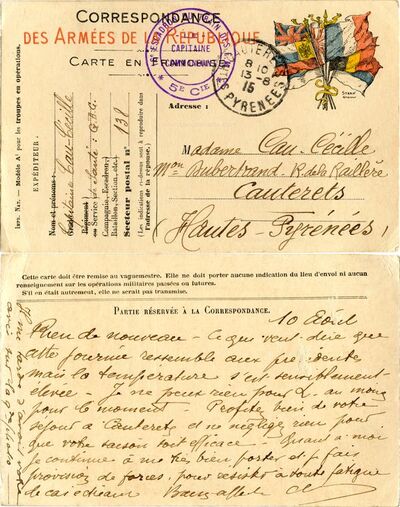 CORRESPONDANCE
DES ARMÉES DE LA RÉPUBLIQUE
CARTE EN FRANCHISE
TRAIN DES ÉQUIPAGES
LE
CAPITAINE
COMMANDANT
* 5e Cie *
CAUTERETS
8 10
13 -8
15
PYRENEES
Adresse :
Madame Cau-Cécille
Mon Dubertrand R. de la Raillère
Cauterets
Hautes-Pyrénées
IMP. NAT. — Modèle A1 pour les troupes en opérations.
EXPÉDITEUR :
Nom et prénoms :
Capitaine Cau-Cécille
ou Service
Compagnie, Escadron,
Bataillon, Section, etc.
Secteur postal n° 138
(Les indications ci-dessus sont à reproduire dans
l'adresse de la réponse.)
Cette carte doit être remise au vaguemestre. Elle ne doit porter aucune indication du lieu d'envoi ni aucun
renseignement sur les opérations militaires passées ou futures.
S'il en était autrement, elle ne serait pas transmise.
PARTIE RÉSERVÉE À LA CORRESPONDANCE.
10 Août
Rien de nouveau — Ce qui veut dire que
cette journée ressemble aux précédentes
mais la température s'est sensiblement
élevée — Je ne peux rien pour L. au moins
pour le moment — Profite bien de votre
séjour à Cauterets et ne négligez rien pour
que votre saison soit efficace — Quant à moi
je continue à me bien porter et je fais
provision de forces, pour résister à toute fatigue